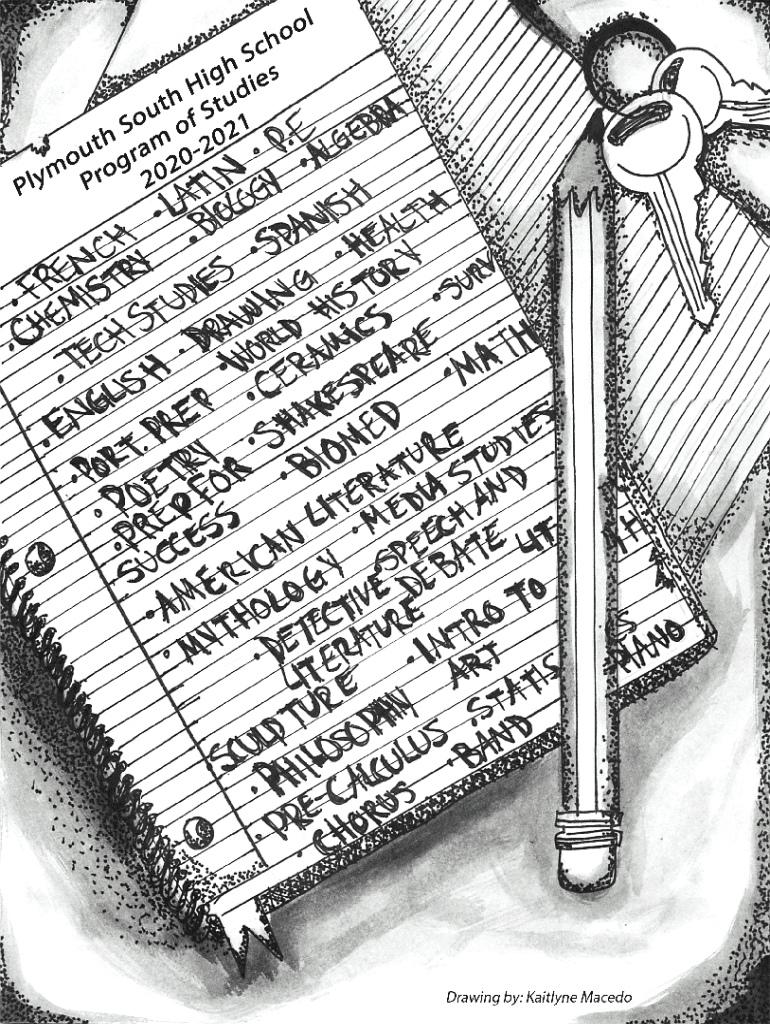 Plymouth South High School
Program of Studies
2020-2021
• FRENCH • LATIN • P.E
• CHEMISTRY • BIOLOGY • ALGEBRA
• TECH STUDIES • SPANISH
• ENGLISH • DRAWING • HEALTH
• PORT. PREP • WORLD HISTORY
• POETRY • CERAMICS • SURV
• PREP FOR • SHAKESPEARE
SUCCESS • BIOMED • MATH
• AMERICAN LITERATURE
• MYTHOLOGY • MEDIA STUDIES
• DETECTIVE • SPEECH AND
LITERATURE DEBATE LIT
SCULPTURE • INTRO TO
• PHILOSOPHY ART
• PRE-CALCULUS • STATIS PIANO
• CHORUS • BAND
Drawing by: Kaitlyne Macedo